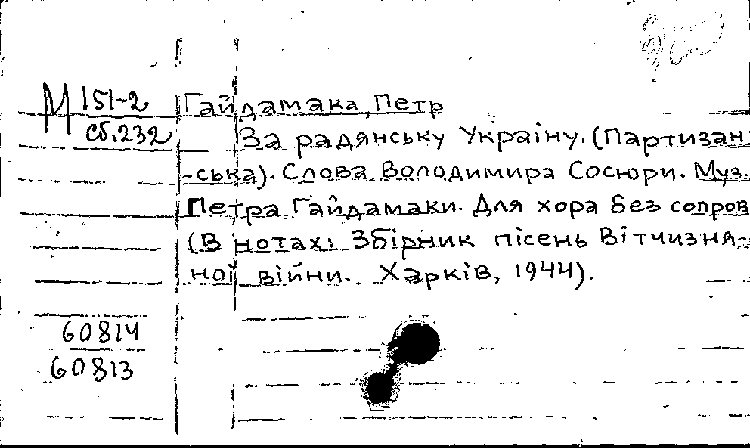 М 151-2
сб.232
Гайдамака, Петр
За радянську Україну. (Партизан-
-ська). Слова Володимира Сосюри. Муз.
Петра Гайдамаки. Для хора без сопров
(В нотах: Збірник пісень Вітчизня-
ної війни. Харків, 1944).
60814
60813